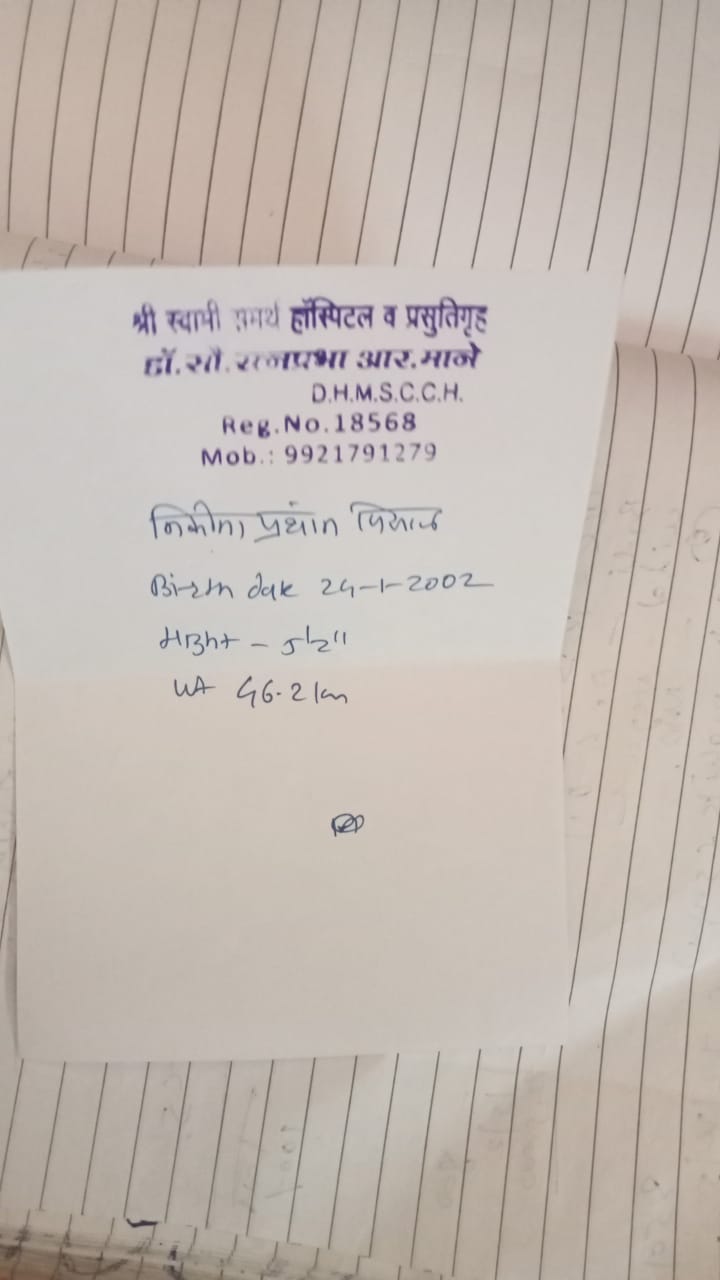 श्री स्वामी समर्थ हॉस्पिटल व प्रसुतिगृह
डॉ.सौ.रत्नप्रभा आर.माने
D.H.M.S.C.C.H.
Reg.No.18568
Mob.: 9921791279
प्रशांत
Birth date 24-1-2002
Hight - 5'2"
Wt 46.2 km